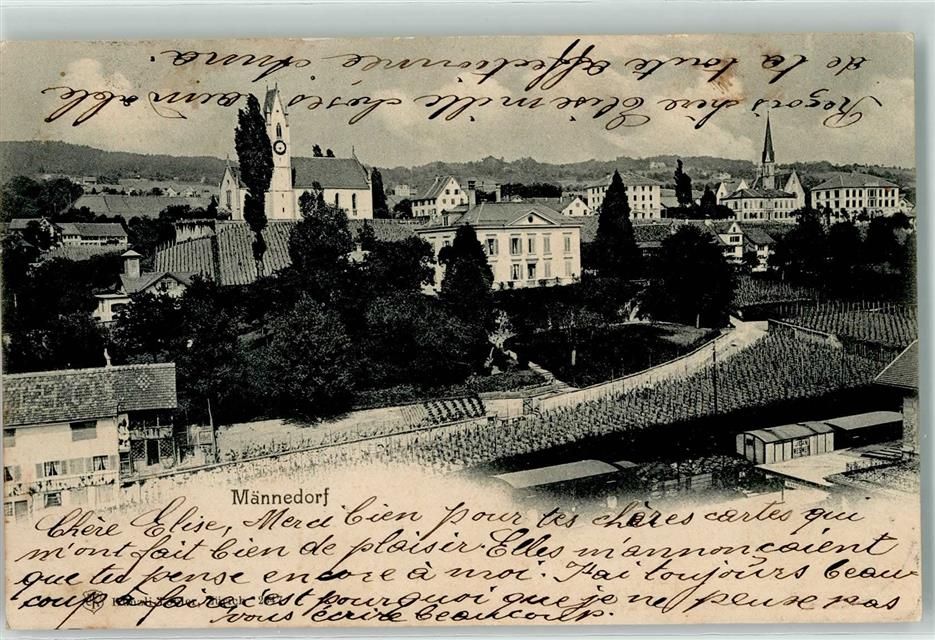 Männedorf
Chère Elise, Merci bien pour tes chères cartes qui
m'ont fait bien de plaisir. Elles m'annoncaient
que tu pense encore à moi. J'ai toujours beau-
coup à faire c'est pourquoi que je ne pense pas
vous écrire beaucoup.
chère Elise mille choses aimable
de la toute affectionnée Anna.